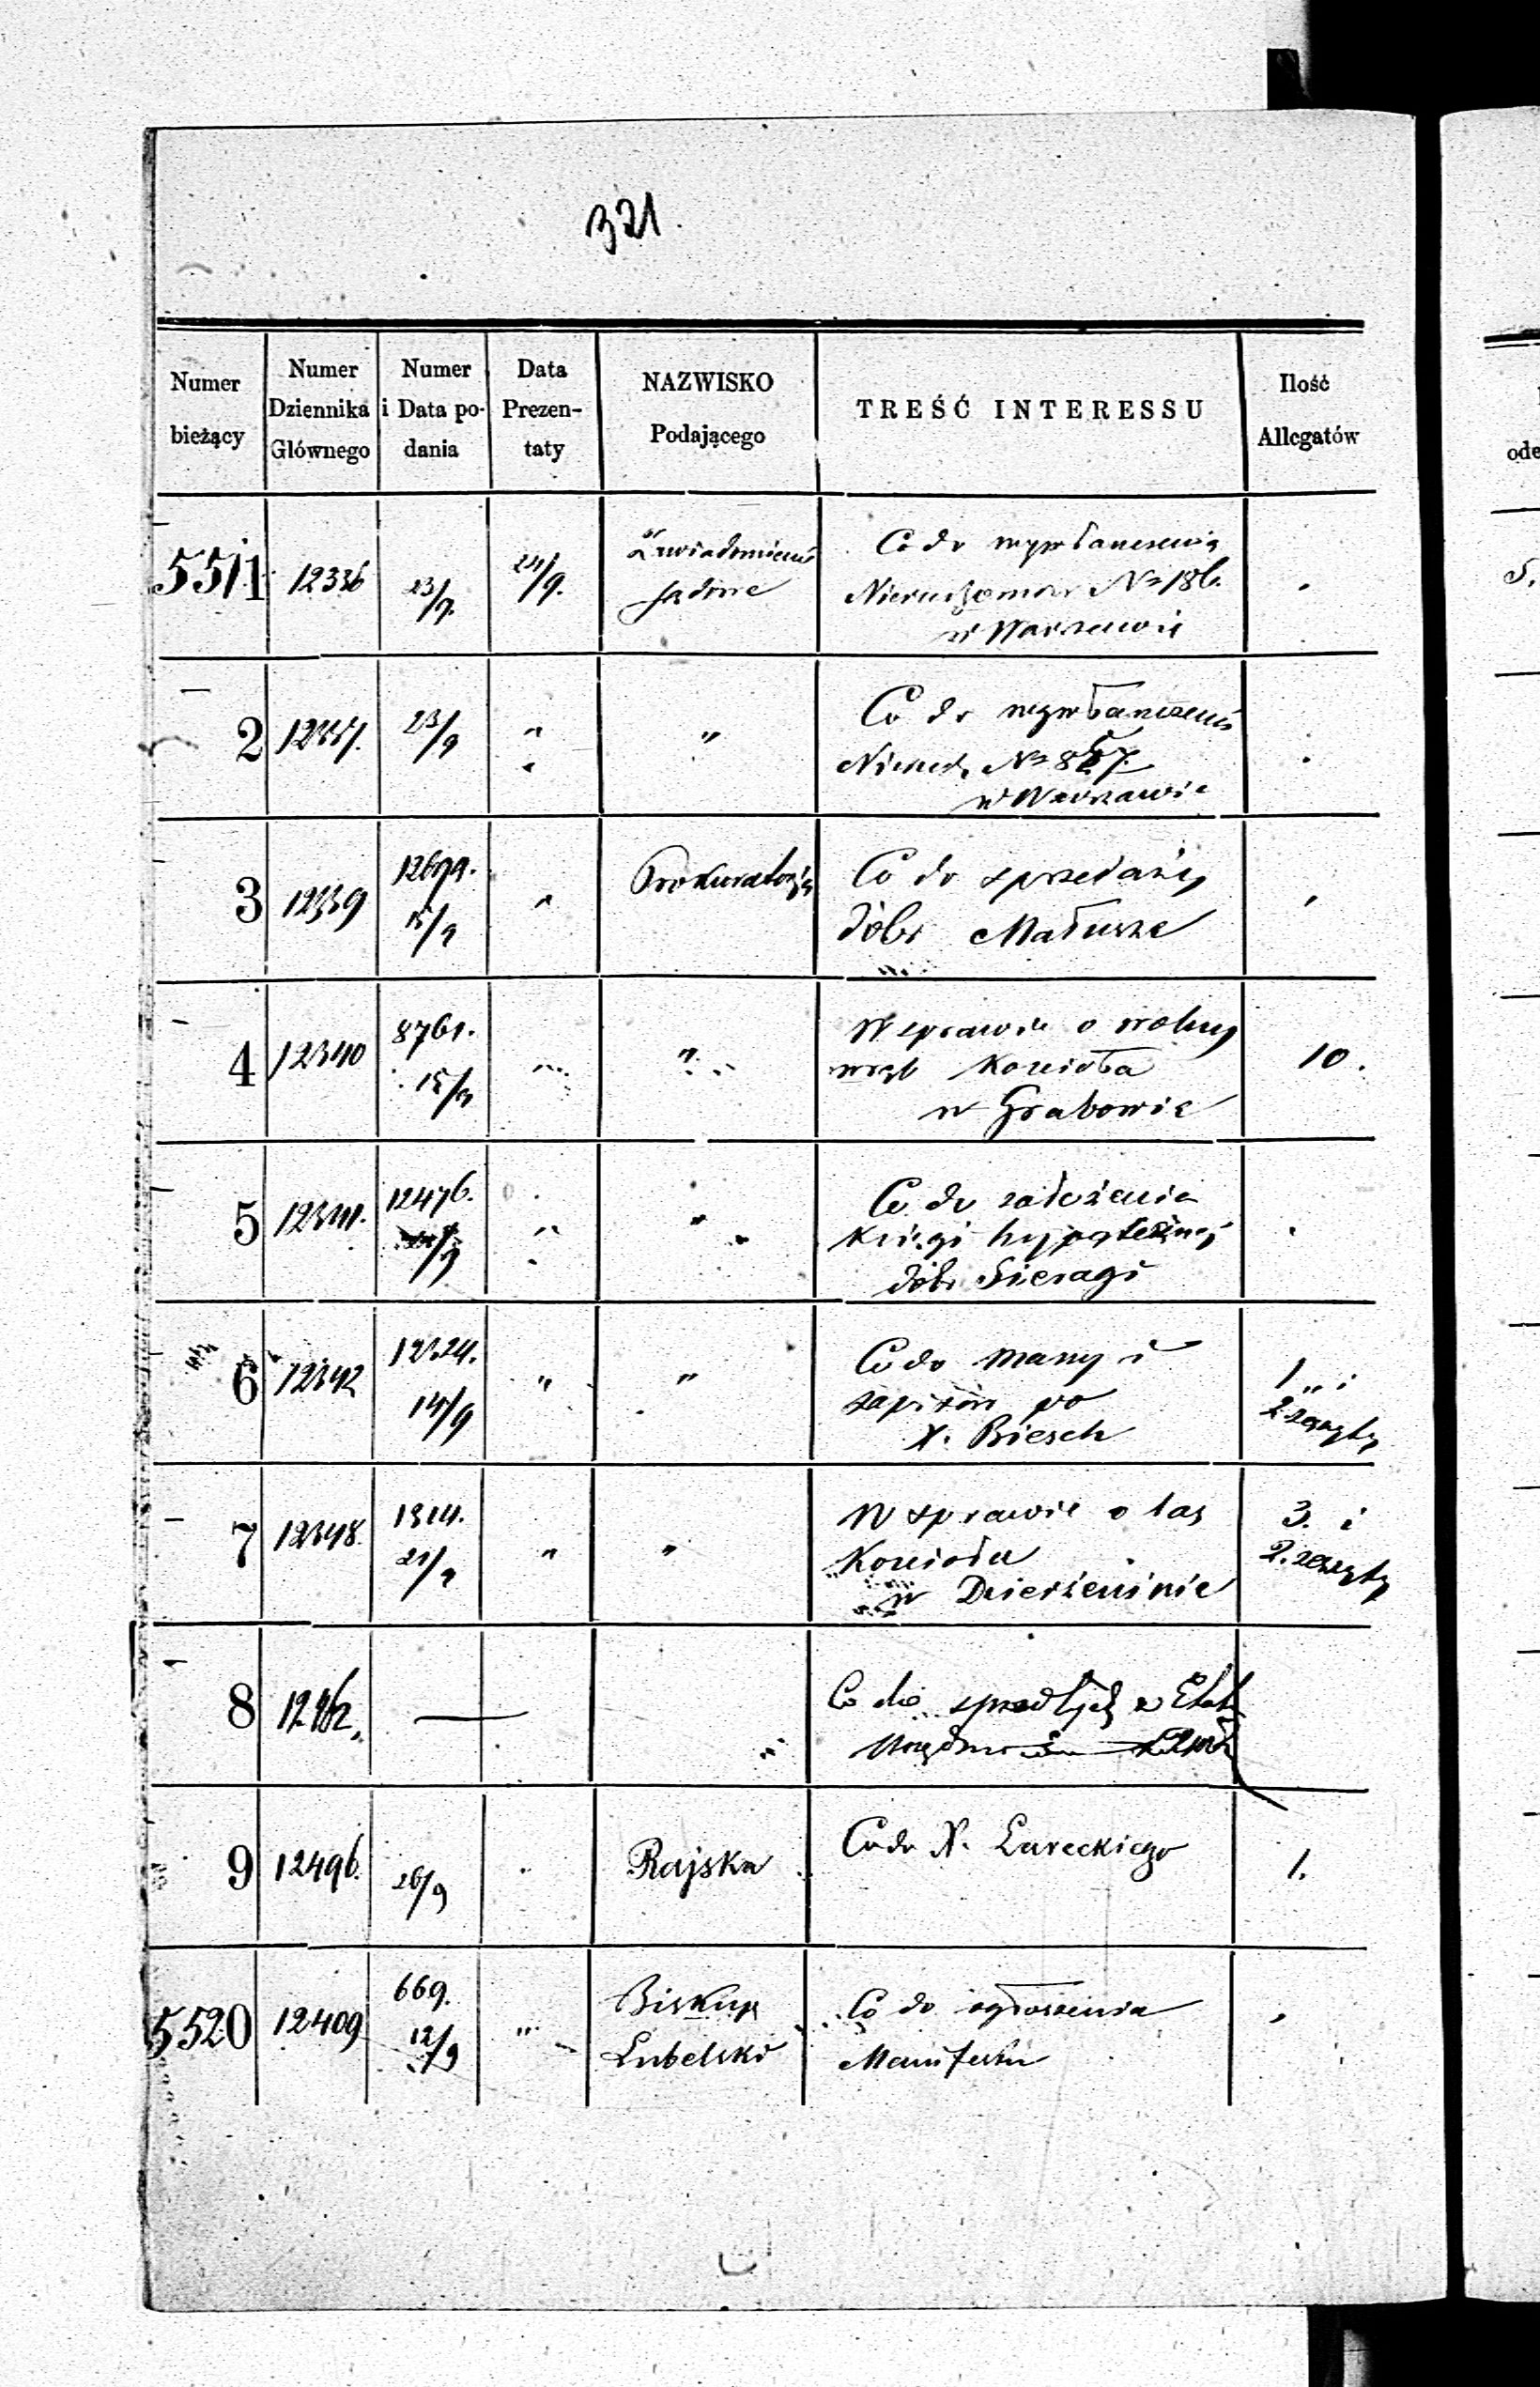 321.
Numer bieżący | Numer Dziennika Głównego | Numer i Data podania | Data Prezentaty | NAZWISKO Podającego | TREŚĆ INTERESSU | Ilość Allegatów
5511 | 12336 | 23/9. | 24/9. | Zawiadomienie sądowe | Co do wywłaszczenia
Nieruchomości № 186.
w Warszawie
2 | 23/9 | " | " | Co do wywłaszczenia
Nieruch. № 857.
w Warszawie
3 | 12339 | 12679. 15/9 | " | Prokuratorya | Co do sprzedaży
dóbr Małusze
4 | 12340 | 8761. 15/9 | " | " | W sprawie o wolny | 10.
wrąb Kościoła
w Grabowie
5 | 12341. | 12476. | " | " | Co do założenia
Księgi hypotecznej
dóbr Sieragi
6 | 12342 | 12324. 14/9 | " | " | Co do massy i | 1 " i
zapisów po | 2 zeszyty
X. Biesch
7 | 12348. | 1314. 21/9 | " | " | W sprawie o las | 3. i
Kościoła | 2. zeszyty
w Dzierżeninie
8 | Co do
9 | 12496. | 26/9 | Rajska | Co do X. Łareckiego | 1.
5520 | 12409 | 669. 12/9 | " | Biskup | Co do ogłoszenia
Lubelski | Manifestu